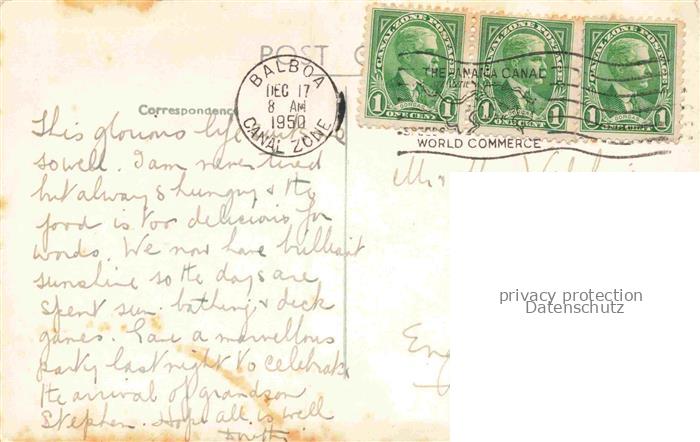 CANAL ZONE POSTAGE
CANAL ZONE POSTAGE
CANAL ZONE POSTAGE
GORGAS
GORGAS
GORGAS
1 ONE CENT 1
1 ONE CENT 1
1 ONE CENT 1
POST C
BALBOA
DEC 17
8 AM
1950
CANAL ZONE
THE PANAMA CANAL
WORLD COMMERCE
Correspondence
This glorious life suits
so well. I am never tired
but always hungry & the
food is too delicious for
words. We now have brilliant
sunshine so the days are
spent sun bathing & deck
games. Gave a marvellous
party last night to celebrate
the arrival of grandson
Stephen. Hope all is well
privacy protection
Datenschutz